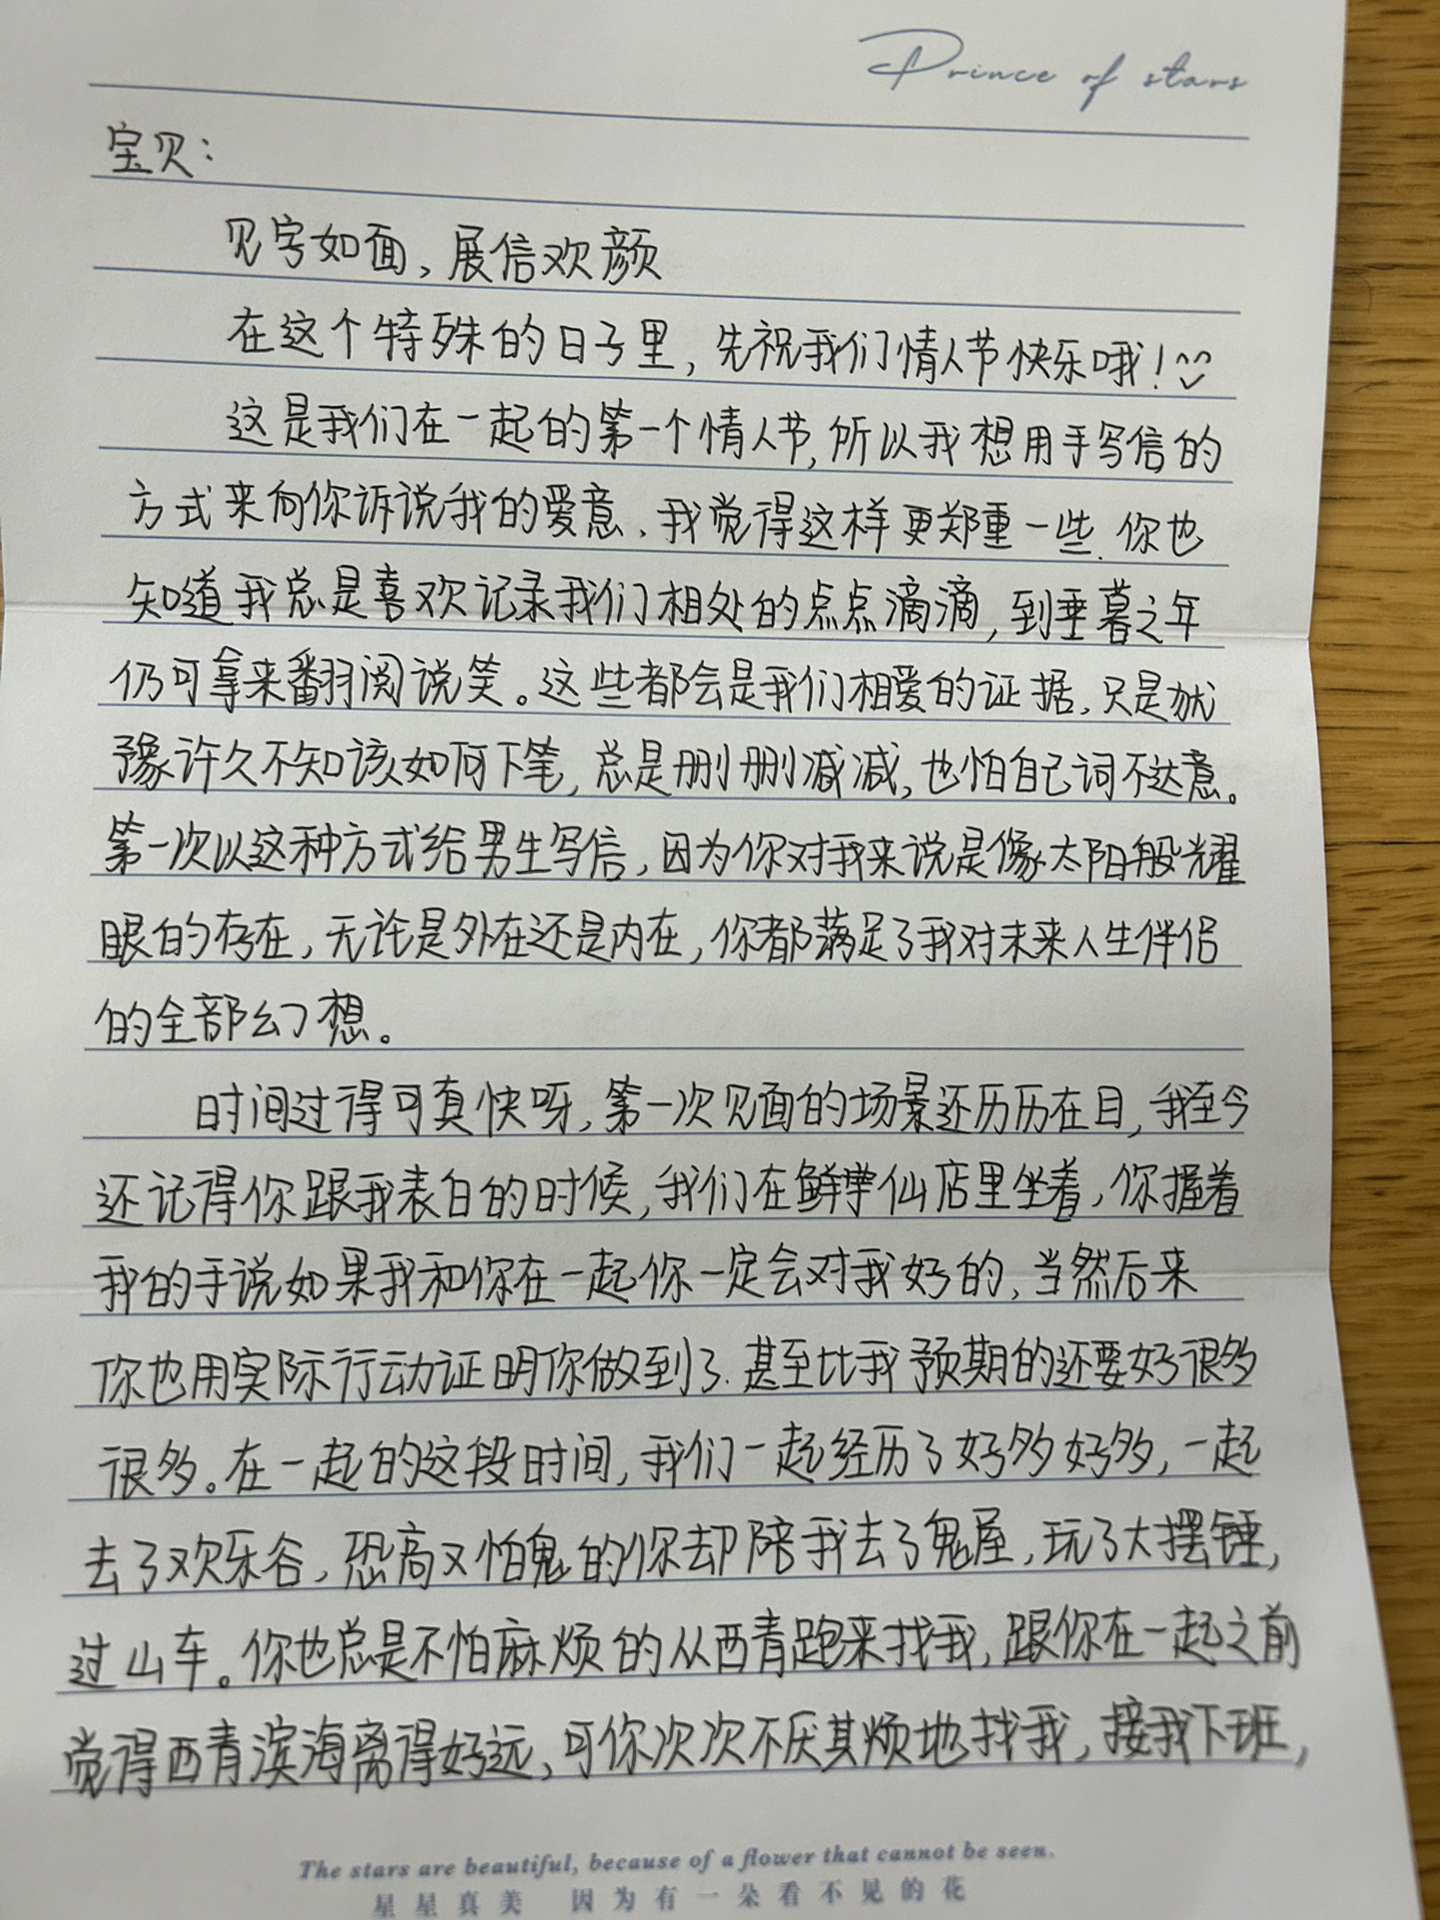 Prince of stars
宝贝:
见字如面,展信欢颜
在这个特殊的日子里,先祝我们情人节快乐哦!
这是我们在一起的第一个情人节,所以我想用手写信的
方式来向你诉说我的爱意、我觉得这样更郑重一些.你也
知道我总是喜欢记录我们相处的点点滴滴,到垂暮之年
仍可拿来翻阅说笑。这些都会是我们相爱的证据,只是犹
豫许久不知该如何下笔,总是删删减减,也怕自己词不达意。
第一次以这种方式给男生写信,因为你对我来说是像太阳般光耀
眼的存在,无论是外在还是内在,你都满足了我对未来人生伴侣
的全部幻想。
时间过得可真快呀,第一次见面的场景还历历在目,我至今
还记得你跟我表白的时候,我们在鲜芋仙店里坐着,你握着
我的手说如果我和你在一起你一定会对我好的,当然后来
你也用实际行动证明你做到了.甚至比我预期的还要好很多
很多。在一起的这段时间,我们一起经历了好多好多,一起
去了欢乐谷,恐高又怕鬼的你却陪我去了鬼屋,玩了大摆锤,
过山车。你也总是不怕麻烦的从西青跑来找我,跟你在一起之前
觉得西青滨海离得好远,可你次次不厌其烦地找我,接我下班,
The stars are beautiful, because of a flower that cannot be seen.
星星真美 因为有一朵看不见的花